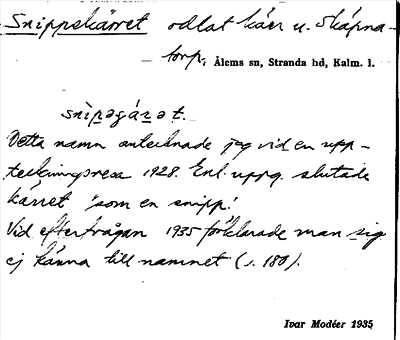 Snippekärret odlat kärr u. Skäpna-
torp, Ålems sn, Stranda hd, Kalm. l.
snìpəɡárət.
Detta namn antecknade jag vid en upp-
teckningsresa 1928. Enl. uppg. slutade
kärret 'som en snipp'.
Vid efterfrågan 1935 förklarade man sig
ej känna till namnet (s. 180).
Ivar Modéer 1935